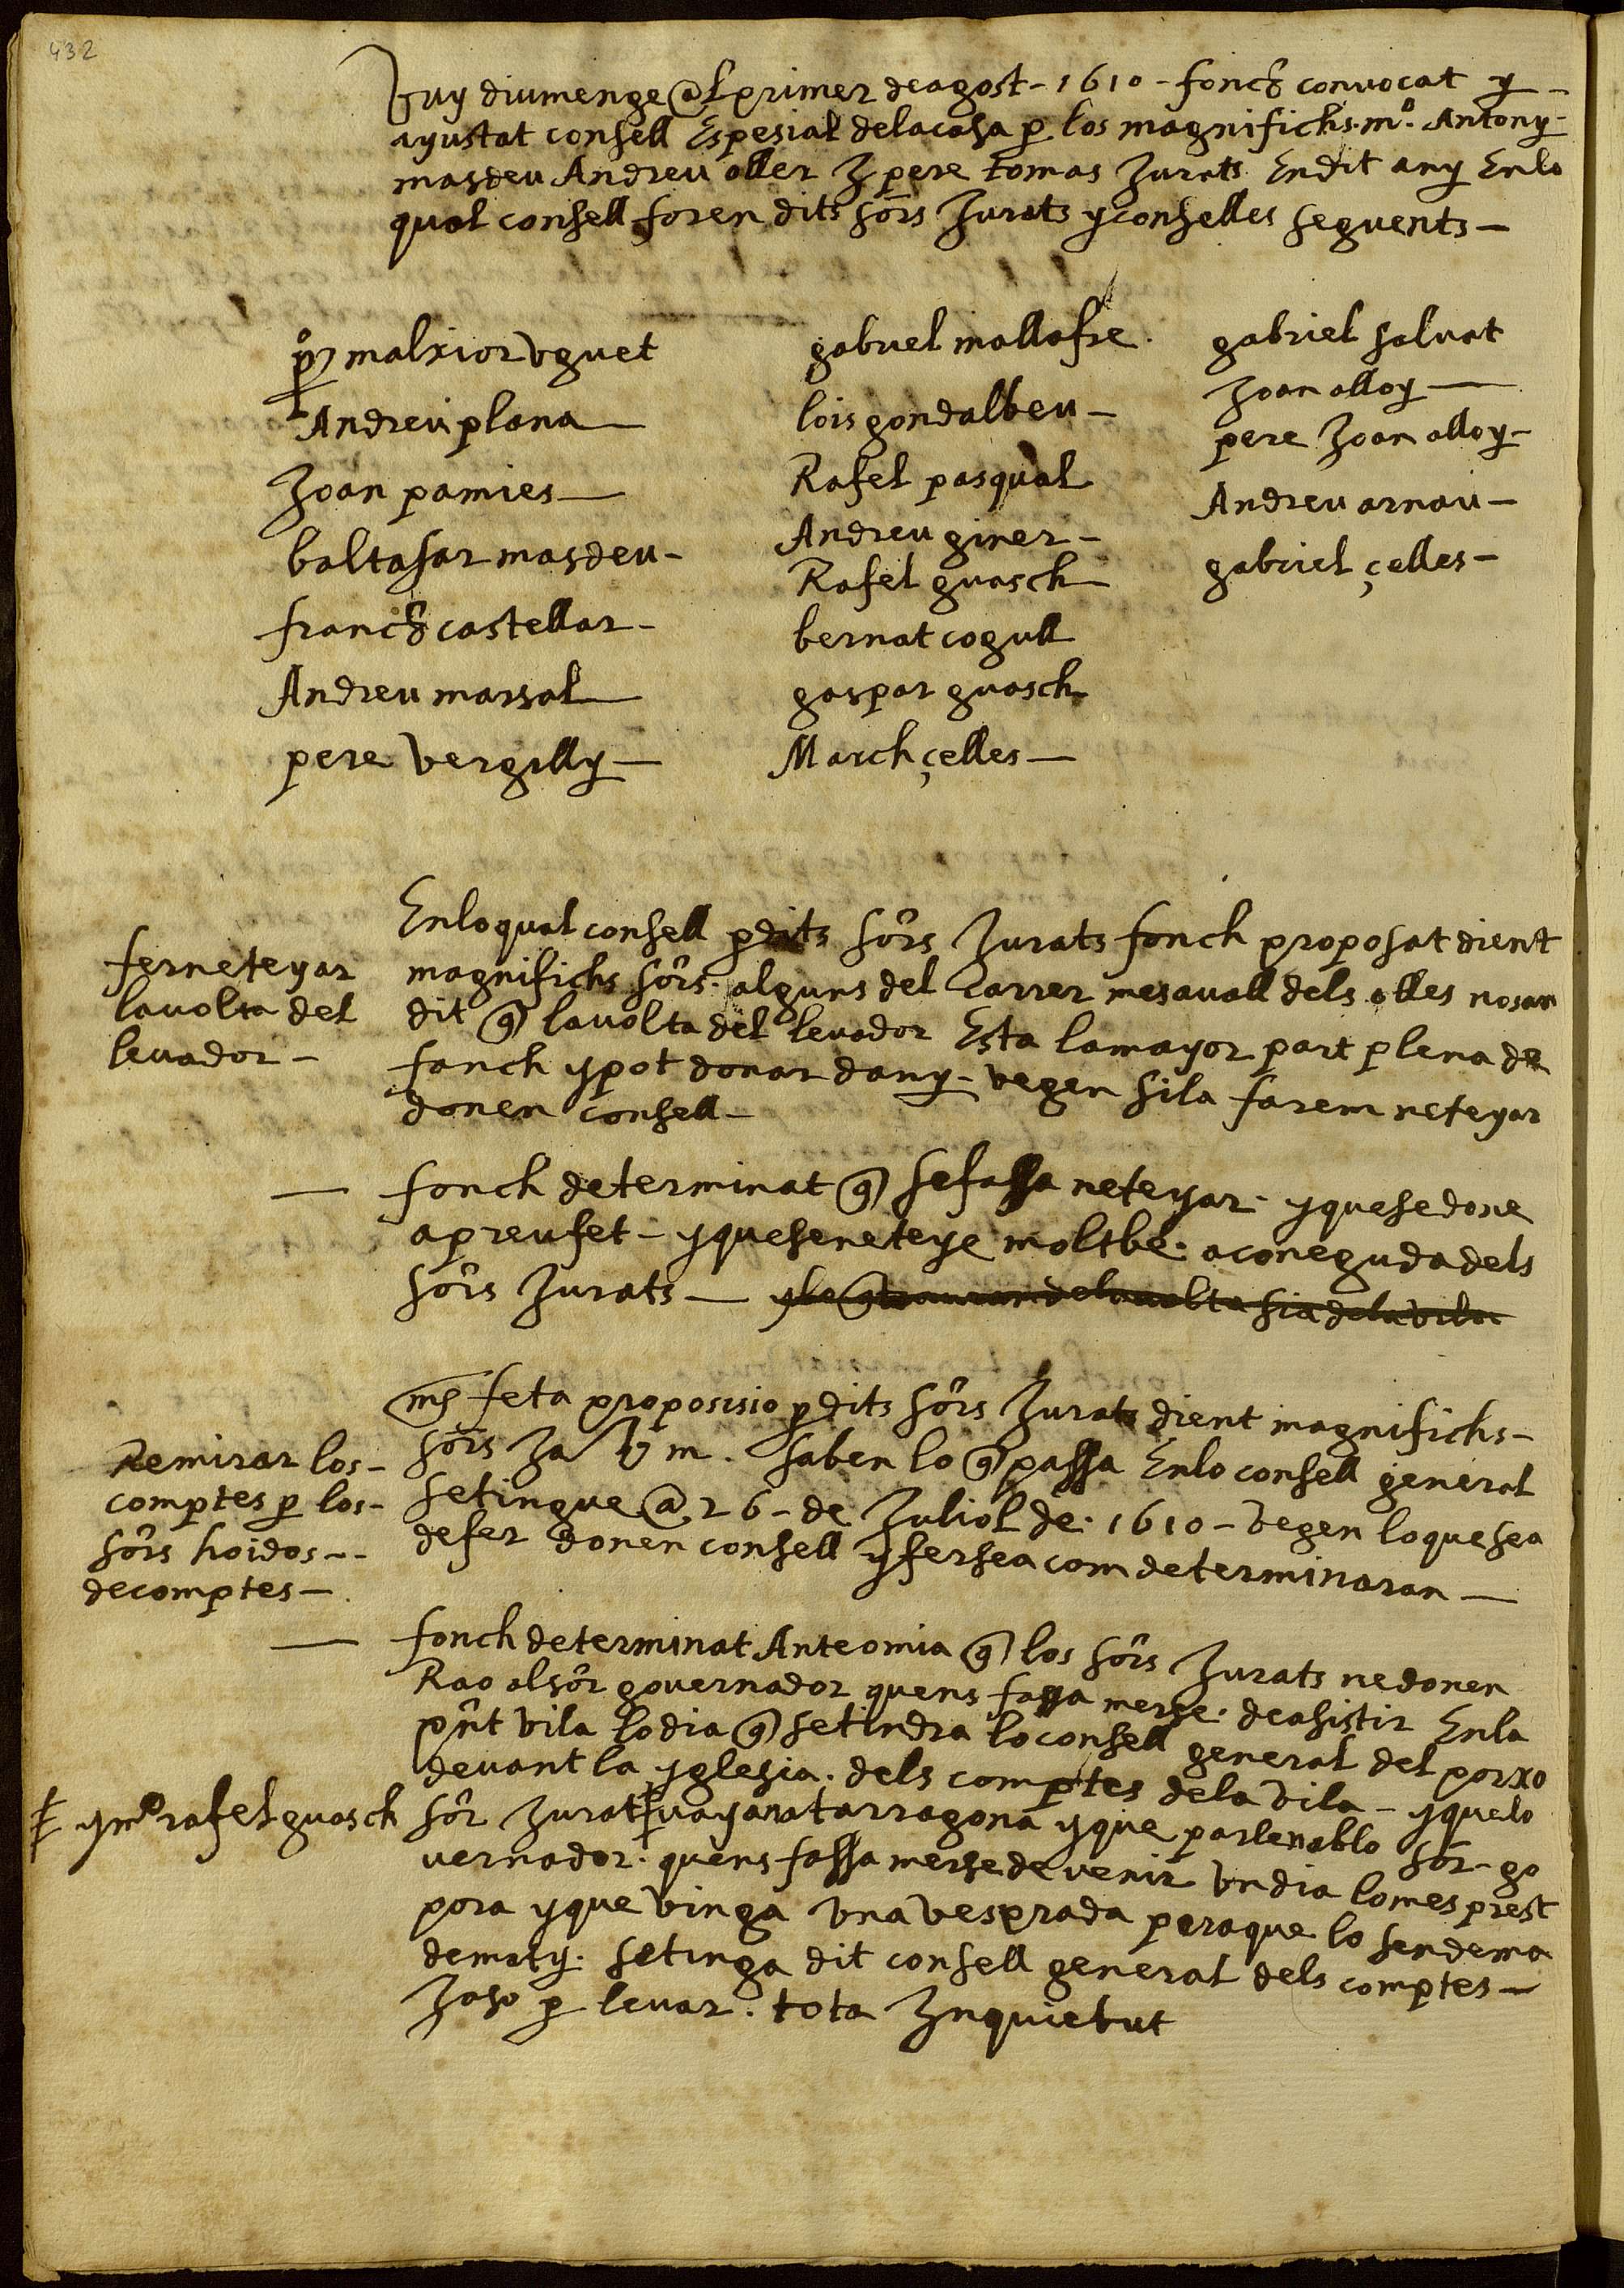 432
Vuy diumenge al primer de agost - 1610 - fonch convocat y
ayustat consell Espesial delacasa p los magnifichs m.º Antony
masdeu Andreu oller J pere tomas Jurats Endit any Enlo
qual consell foren dits sōrs Jurats y conselles seguents -
pº malxior uguet
Andreu plana -
Joan pamies -
baltasar masdeu -
franch castellar -
Andreu marsal
pere vergilly -
gabriel mallafre
lois gondalbeu -
Rafel pasqual
Andreu giner -
Rafel guasch
bernat cogull
gaspar guasch
March çelles -
gabriel salvat
Joan alloy -
pere Joan alloy -
Andreu arnau -
gabriel çelles -
fer neteyar
lavolta del
levador -
Enloqual consell p dits sōrs Jurats fonch proposat dient
magnifichs sōrs. alguns del Carrer mesavall dels olles nosan
dit q̃ lavolta del levador Esta lamayor part plena de
fanch ypot donar dany - vegen sila farem neteyar
donen consell -
- fonch determinat q̃ sefassa neteyar. yquesedone
apreufet - yqueseneteye moltbe. aconegudadels
sōrs Jurats - yle q̃ trauran delavolta sia dela vila
Remirar los -
comptes p los -
sōrs hoidos -
decomptes -
mes feta proposisio p dits sōrs Jurats dient magnifichs -
sōrs Ja v m. saben lo q̃ passa Enlo consell general
setingue a 26 - de Juliol de. 1610 - vegen loquesea
defer donen consell yfersea com determinaran -
- fonch determinat Anteomia q̃ los sōrs Jurats nedonen
Rao alsōr governador quens fassa merse. deasistir Enla
pnt vila lodia q̃ setindra loconsell general del porxo
devant la yglesia. dels comptes dela vila - yquelo
ymº rafel guasch
sōr Jurat vayanatarragona yque parlenablo sōr - go
vernador. quens fassa mersedevenir undia lomes prest
pora yque vinga una vesprada peraque lo sendema
dematy. setinga dit consell general dels comptes -
Jaso p levar. tota Inquietut